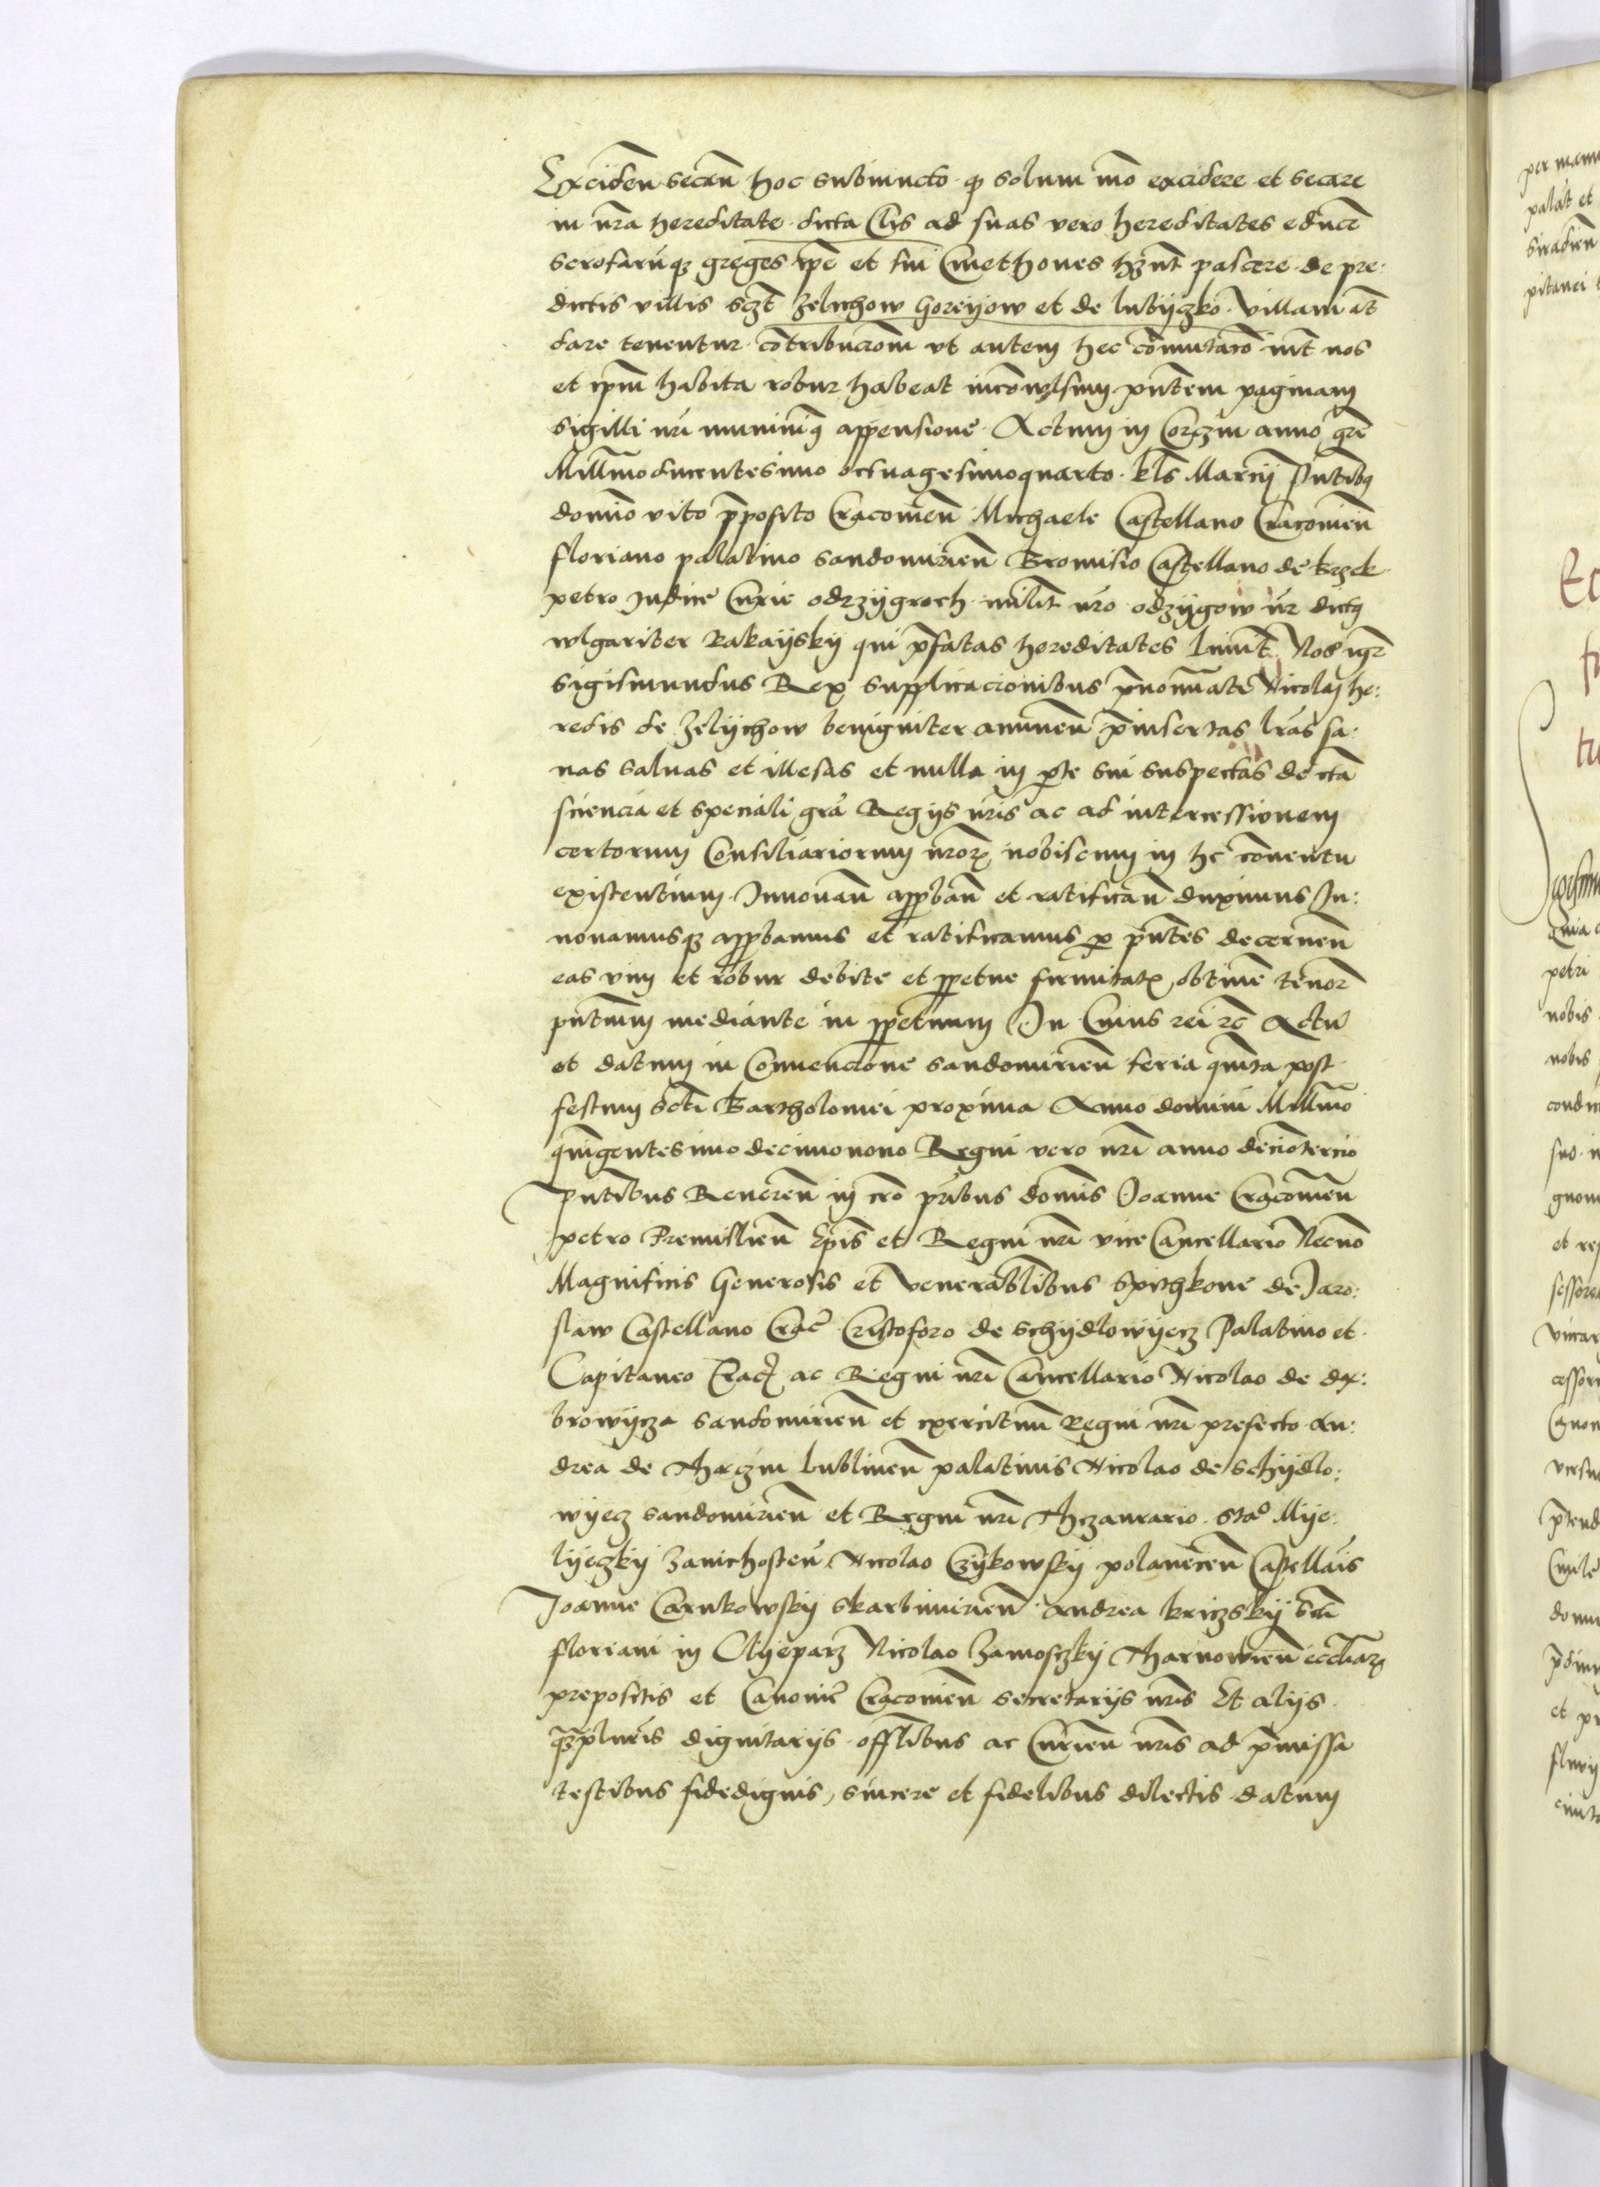 Exciden̄ secan̄ hoc subiuncto q̨ solum mō excidere et secare
in n̄ra hereditate dicta Clis ad suas vero hereditates educe͞
scrofarūq̨ greges ip̄e et sui Cmethones hn̄t pascere de pre:
dictis villis Zelichow Goreyow et de lubyczko villani
dare tenentur cōtribucionē vt autem hec cōmutacō int̄ nos
et ip̄m habita robur habeat incōwlsum pn̄tem paginam
sigilli nr̄i munimīe appensione Actum in Corczin anno gr̄e
Mill̄mo ducentesimo octuagesimoquarto kl̄s Marcij Pn̄tibus
domīno vito pposito Cracouien̄ Michaele Castellano Cracouien̄
floriano palatino sandomirien̄ Bromisio Castellano de
petro Judice Curie odrzygroch milit̄ nr̄o odzygow dictus
wlgariter Rakaysky qui p̄fatas hereditates Nos igr̄
Sigismundus Rex supplicacionibus p̄nominati Nicolaj he:
redis de Zelychow benigniter annuen̄ p̄insertas lr̄as sa:
nas saluas et illesas et nulla in p̄te sui suspectas de cta
sciencia et speciali gr̄a Regijs nr̄is ac ad intercessionem
certorum Consiliariorum nr̄oꝝ nobiscum in hc̄ cōuentu
existentium Innouan̄ app̄ban̄ et ratifican̄ duximus In:
nouamusq̨ app̄bamus et ratificamus p̄ pn̄tes decernen̄
eas vim et robur debite et pp̄etue firmitatꝭ obtine͞ tenor͞
pn̄tium mediante in pp̄etuum In Cuius rei rc Actu͞
et datum in Conuencione sandomirien̄ feria quīta post
festum sct̄i Bartholomei proxima Anno domini Mill̄mo
quīngentesimo decimonono Regni vero nr̄i anno deciotercio
Pn̄tibus Reueren̄ in cr̄o pr̄ibus domīs Joanne Cracouien̄
petro Premislien̄ Ep̄is et Regni nr̄i vice Cancellario Necnō
Magnificis Generosis et venerabl̄ibus Spithkone de Jaro:
slaw Castellano Crac̄ Cristoforo de Schydlowyecz Palatino et
Capitaneo Crac̄ ac Regni nr̄i Cancellario Nicolao de da:
browycza sandomirien̄ et exercituū Regni nr̄i prefecto An:
drea de Thaczin lublinen̄ palatinis Nicolao de Schydlo:
wyecz sandomirien̄ et Regni nr̄i Thezaurario Sta͞o Mye:
lyeczky Zauichosten̄ Nicolao Czykowsky polanecen̄ Castellāis
Joanne Carnkowsky skarbimirien̄ Andrea kriczsky Sct̄i
floriani in Clyeparz Nicolao Zamosczky Tharnowien̄ eccl̄iaꝝ
prepositis et Canonic̄ Cracouien̄ secretarijs nr̄is Et alijs
q̨ꝫpluri͞s dignitarijs offl̄ibus ac Curien̄ nr̄is ad p̄missa
testibus fidedignis, sincere et fidelibus dilectis datum